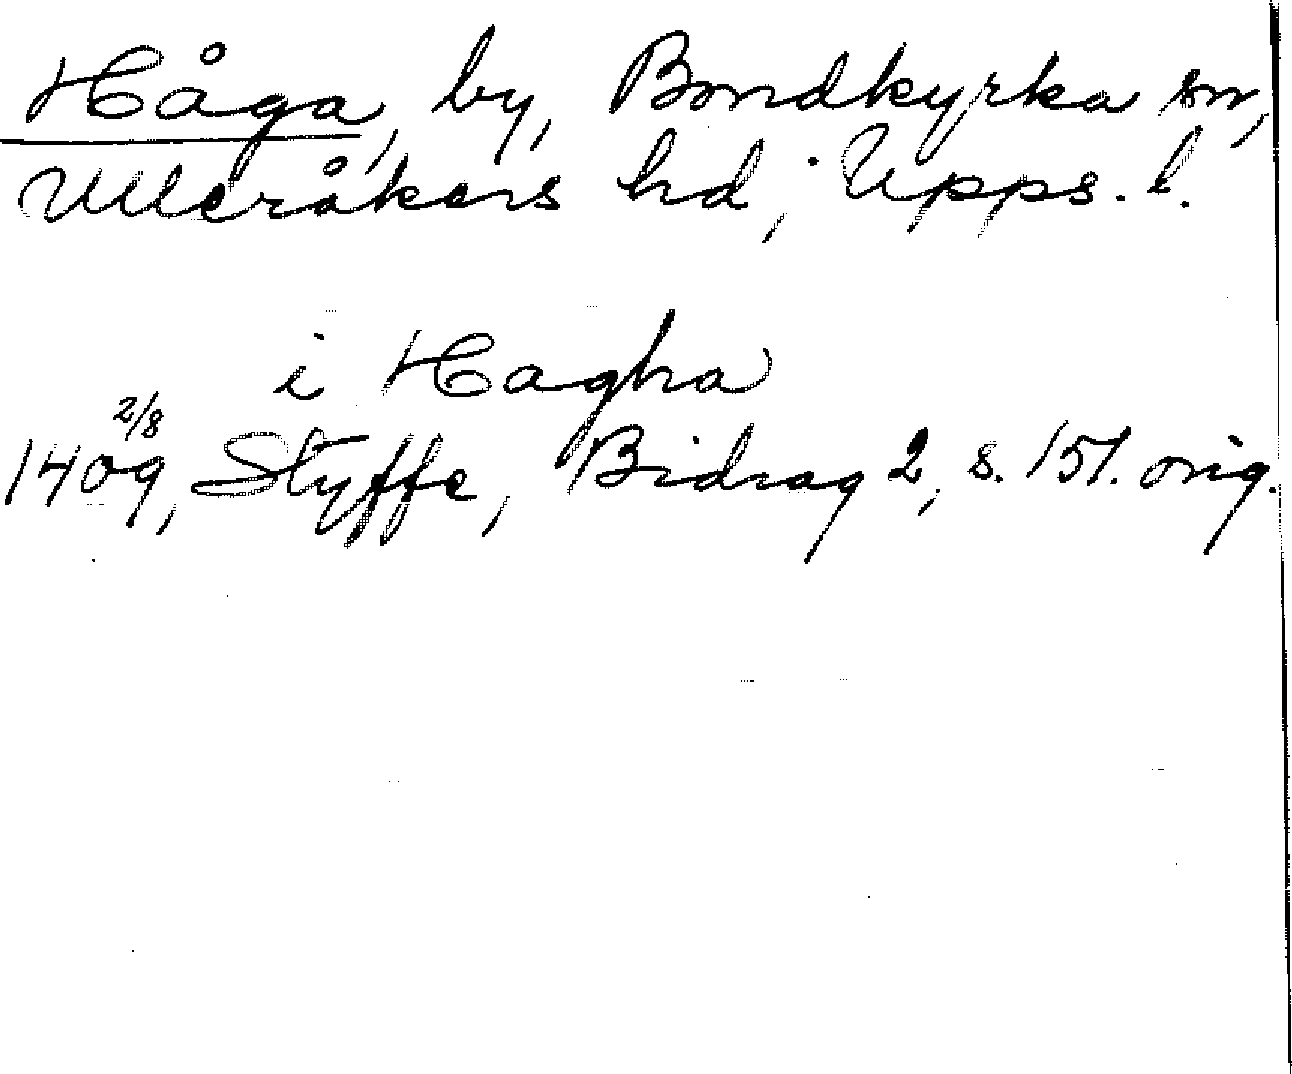 Håga, by, Bondkyrka sn,
Ulleråkers hd, Upps. l.
i Hagha
2/8
1409, Styffe, Bidrag 2, s. 151. orig.